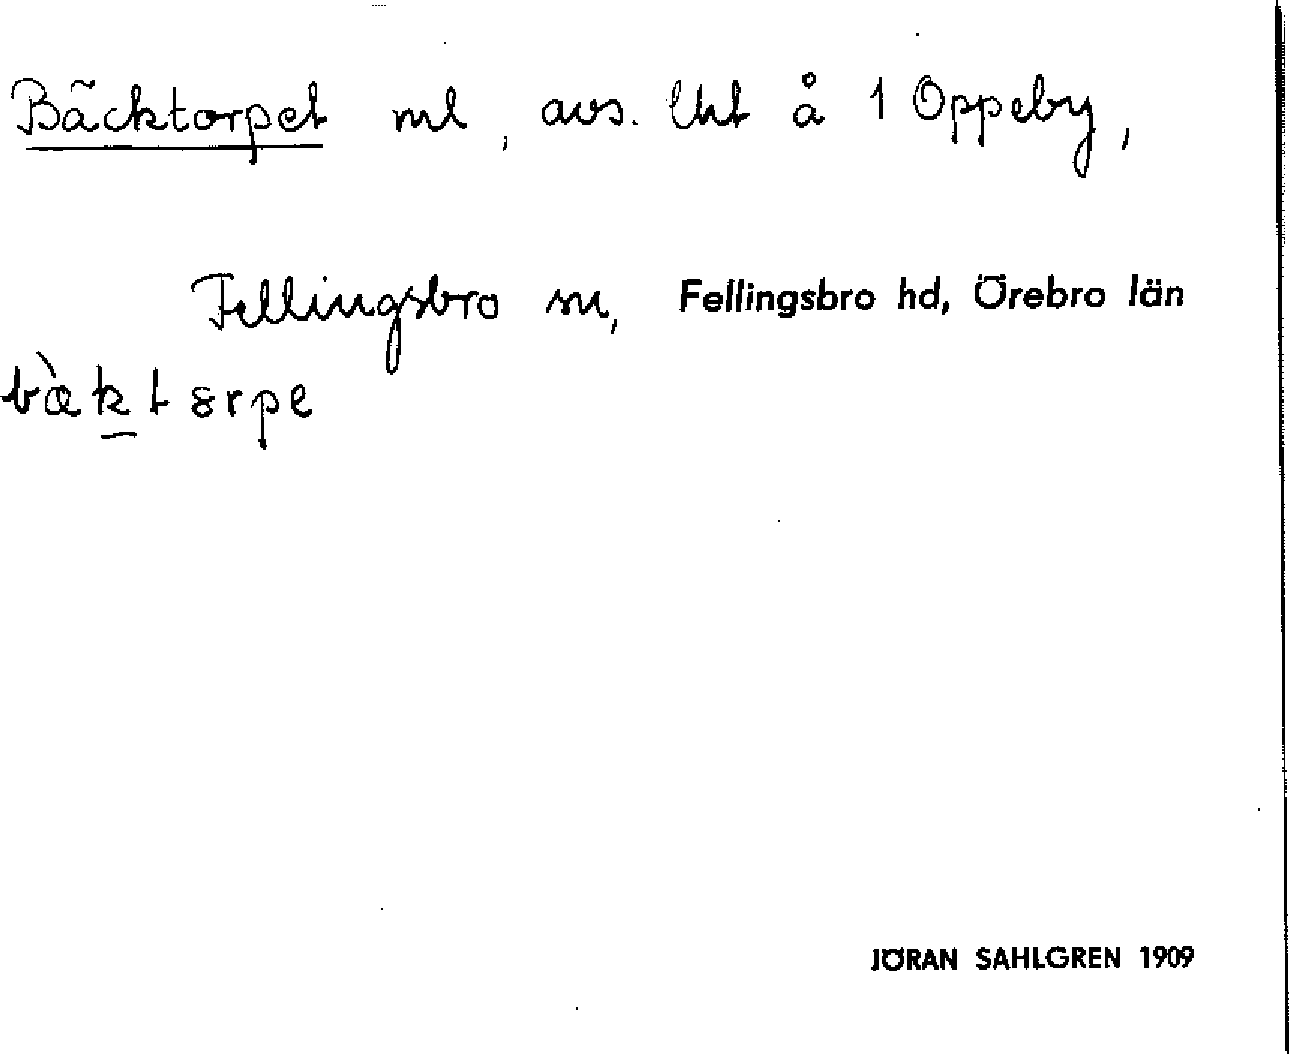 Bäcktorpet ml, avs. lht å 1 Oppeby,
Fellingsbro sn, Fellingsbro hd, Örebro län
bæ̀k̲t8rpe
JÖRAN SAHLGREN 1909